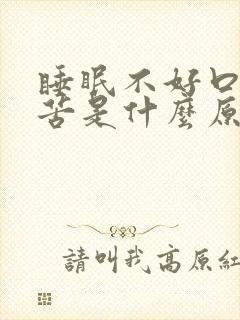 睡眠不好口
苦是什麼原
請叫我高原紅